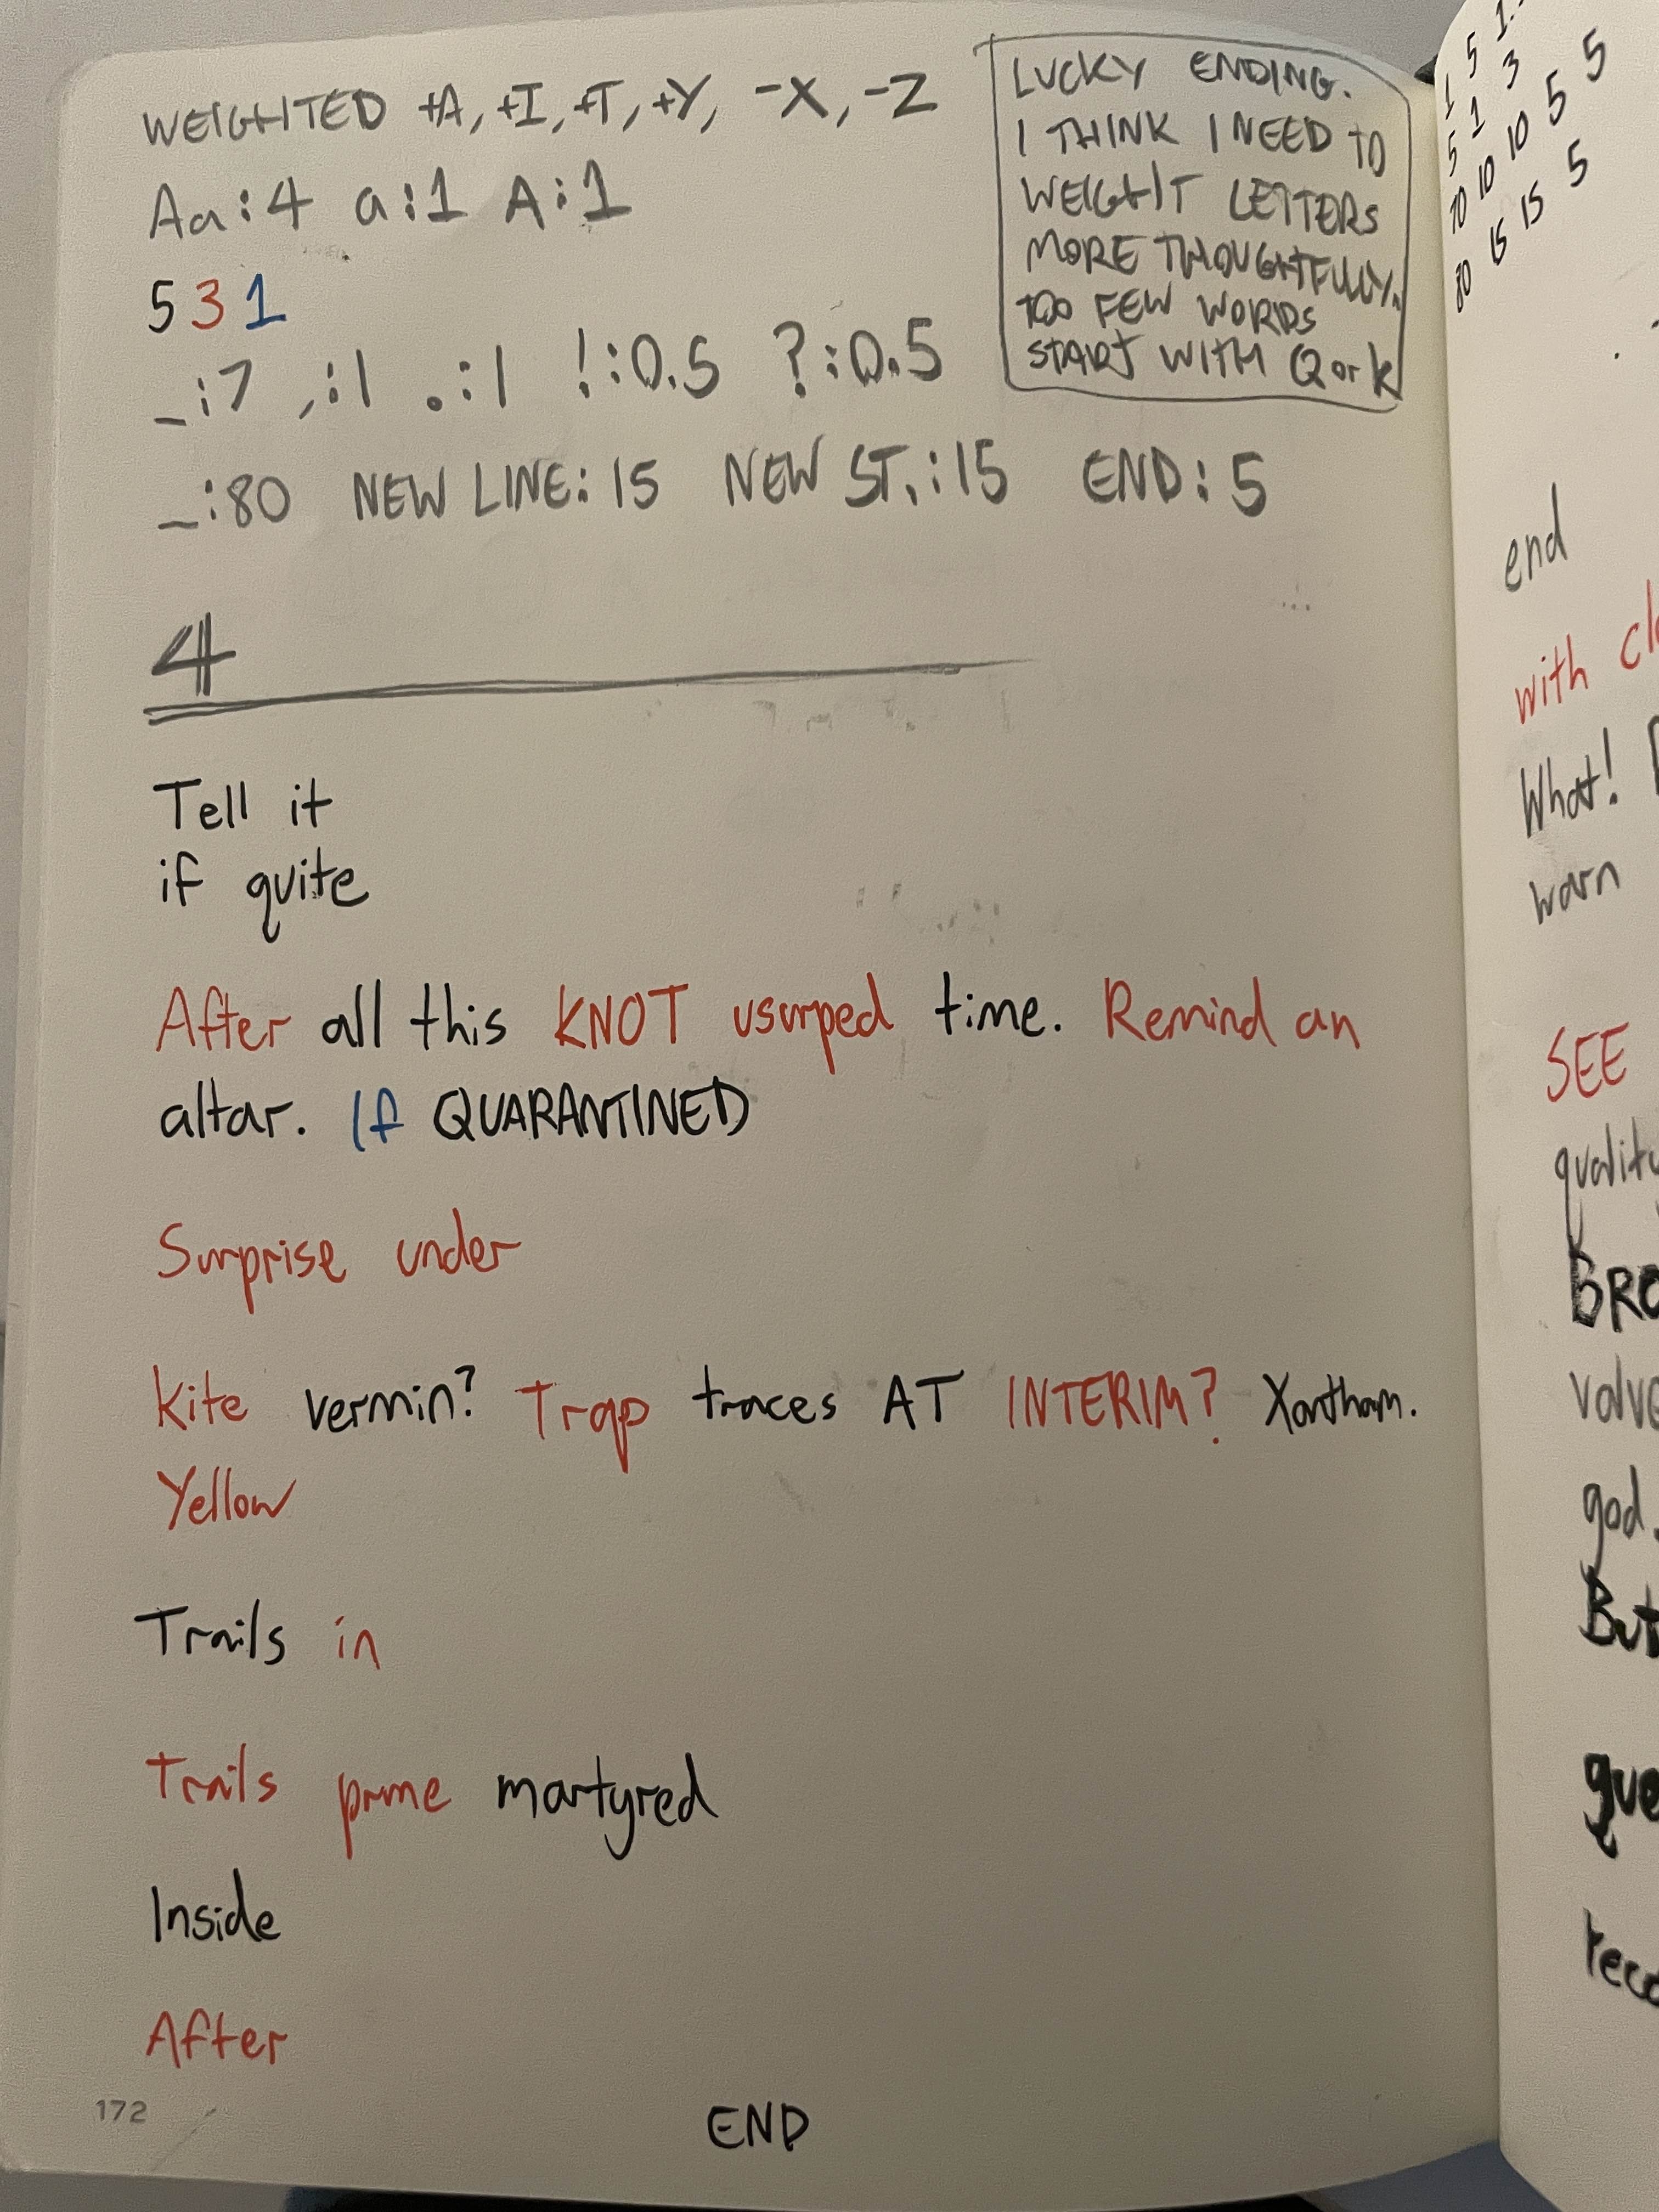 WEIGHTED +A, +I, +T, +Y, -X, -Z
Aa:4 a:1 A:1
5 3 1
_:7 ,:1 .:1 !:0.5 ?:0.5
_:80 NEW LINE: 15 NEW ST.:15 END: 5
LUCKY ENDING.
I THINK I NEED TO
WEIGHT LETTERS
MORE THOUGHTFULLY.
TOO FEW WORDS
START WITH Q or K
4
Tell it
if quite
After all this KNOT usurped time. Remind an
altar. If QUARANTINED
Surprise under
Kite vermin? Trap traces AT INTERIM? Xantham.
Yellow
Trails in
Trails prime martyred
Inside
After
172
END
5 1
1 1 3
5 10 10 5 5
70 15 15 5
80
end
with
What!
warn
SEE
quality
god.